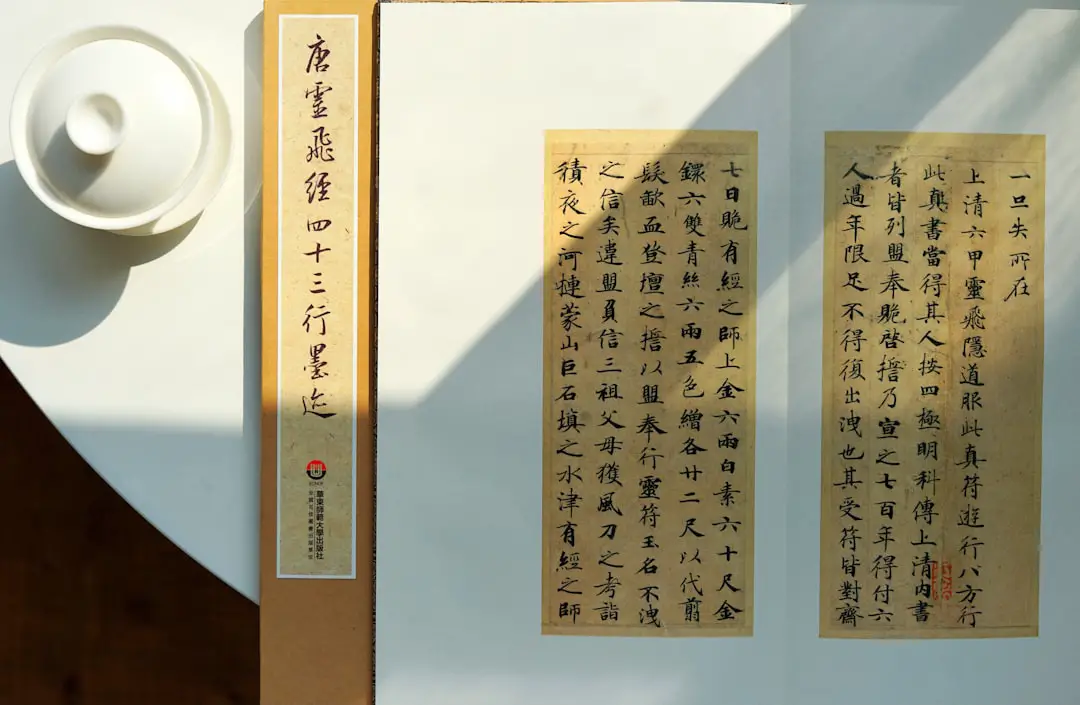 唐靈飛經四十三行墨迹
ECNUP
華東師範大學出版社
一旦失所在
上清六甲靈飛隱道服此真符遊行八方行
此真書當得其人按四極明科傳上清內書
者皆列盟奉貺啓誓乃宣之七百年得付六
人過年限足不得復出洩也其受符皆對齋
七日貺有經之師上金六兩白素六十尺金
鐶六雙青絲六兩五色繒各廿二尺以代翦
髮歃血登壇之誓以盟奉行靈符玉名不洩
之信矣違盟負信三祖父母獲風刀之考詣
積夜之河揵蒙山巨石填之水津有經之師